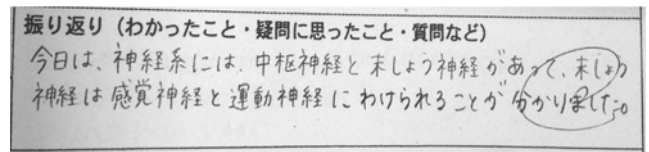 振り返り（わかったこと・疑問に思ったこと・質問など）
今日は、神経系には、中枢神経と末しょう神経があって、末しょう
神経は感覚神経と運動神経にわけられることが分かりました。